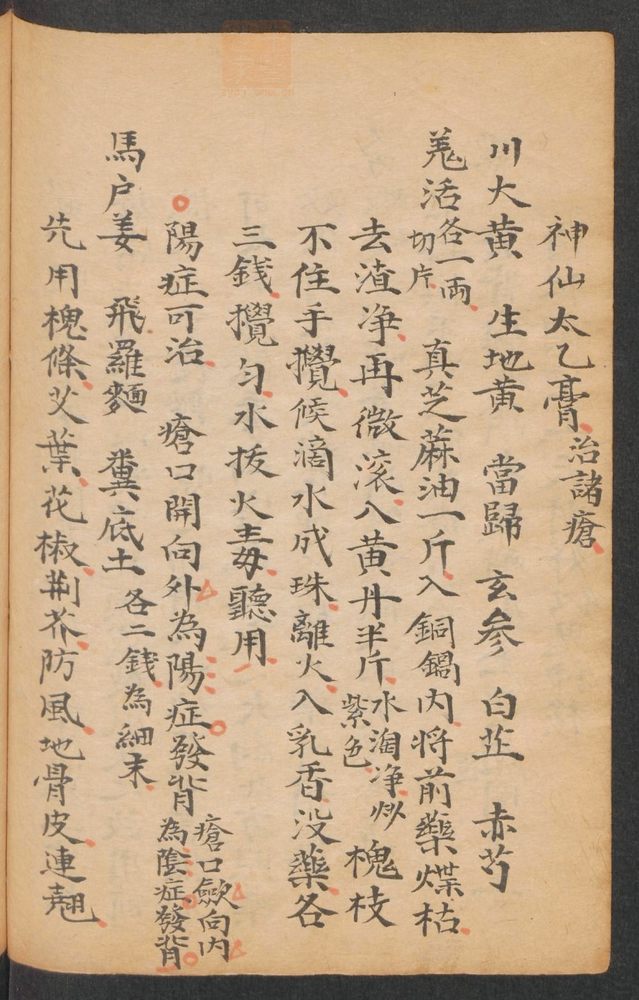 神仙太乙膏治諸瘡
川大黄 生地黄 當歸 玄參 白芷 赤芍
羗活各一兩切片 真芝蔴油一斤入銅鍋内将前藥煠枯
去渣净再微滚入黄丹半斤水淘净炒紫色 槐枝
不住手攪候滴水成珠離火入乳香没藥各
三錢攪匀水拔火毒聽用
陽症可治 瘡口開向外為陽症發背 瘡口歛向内為陰症發背
馬户姜 飛羅麵 糞底土 各二錢為細末
先用槐條艾葉花椒荆芥防風地骨皮連翹